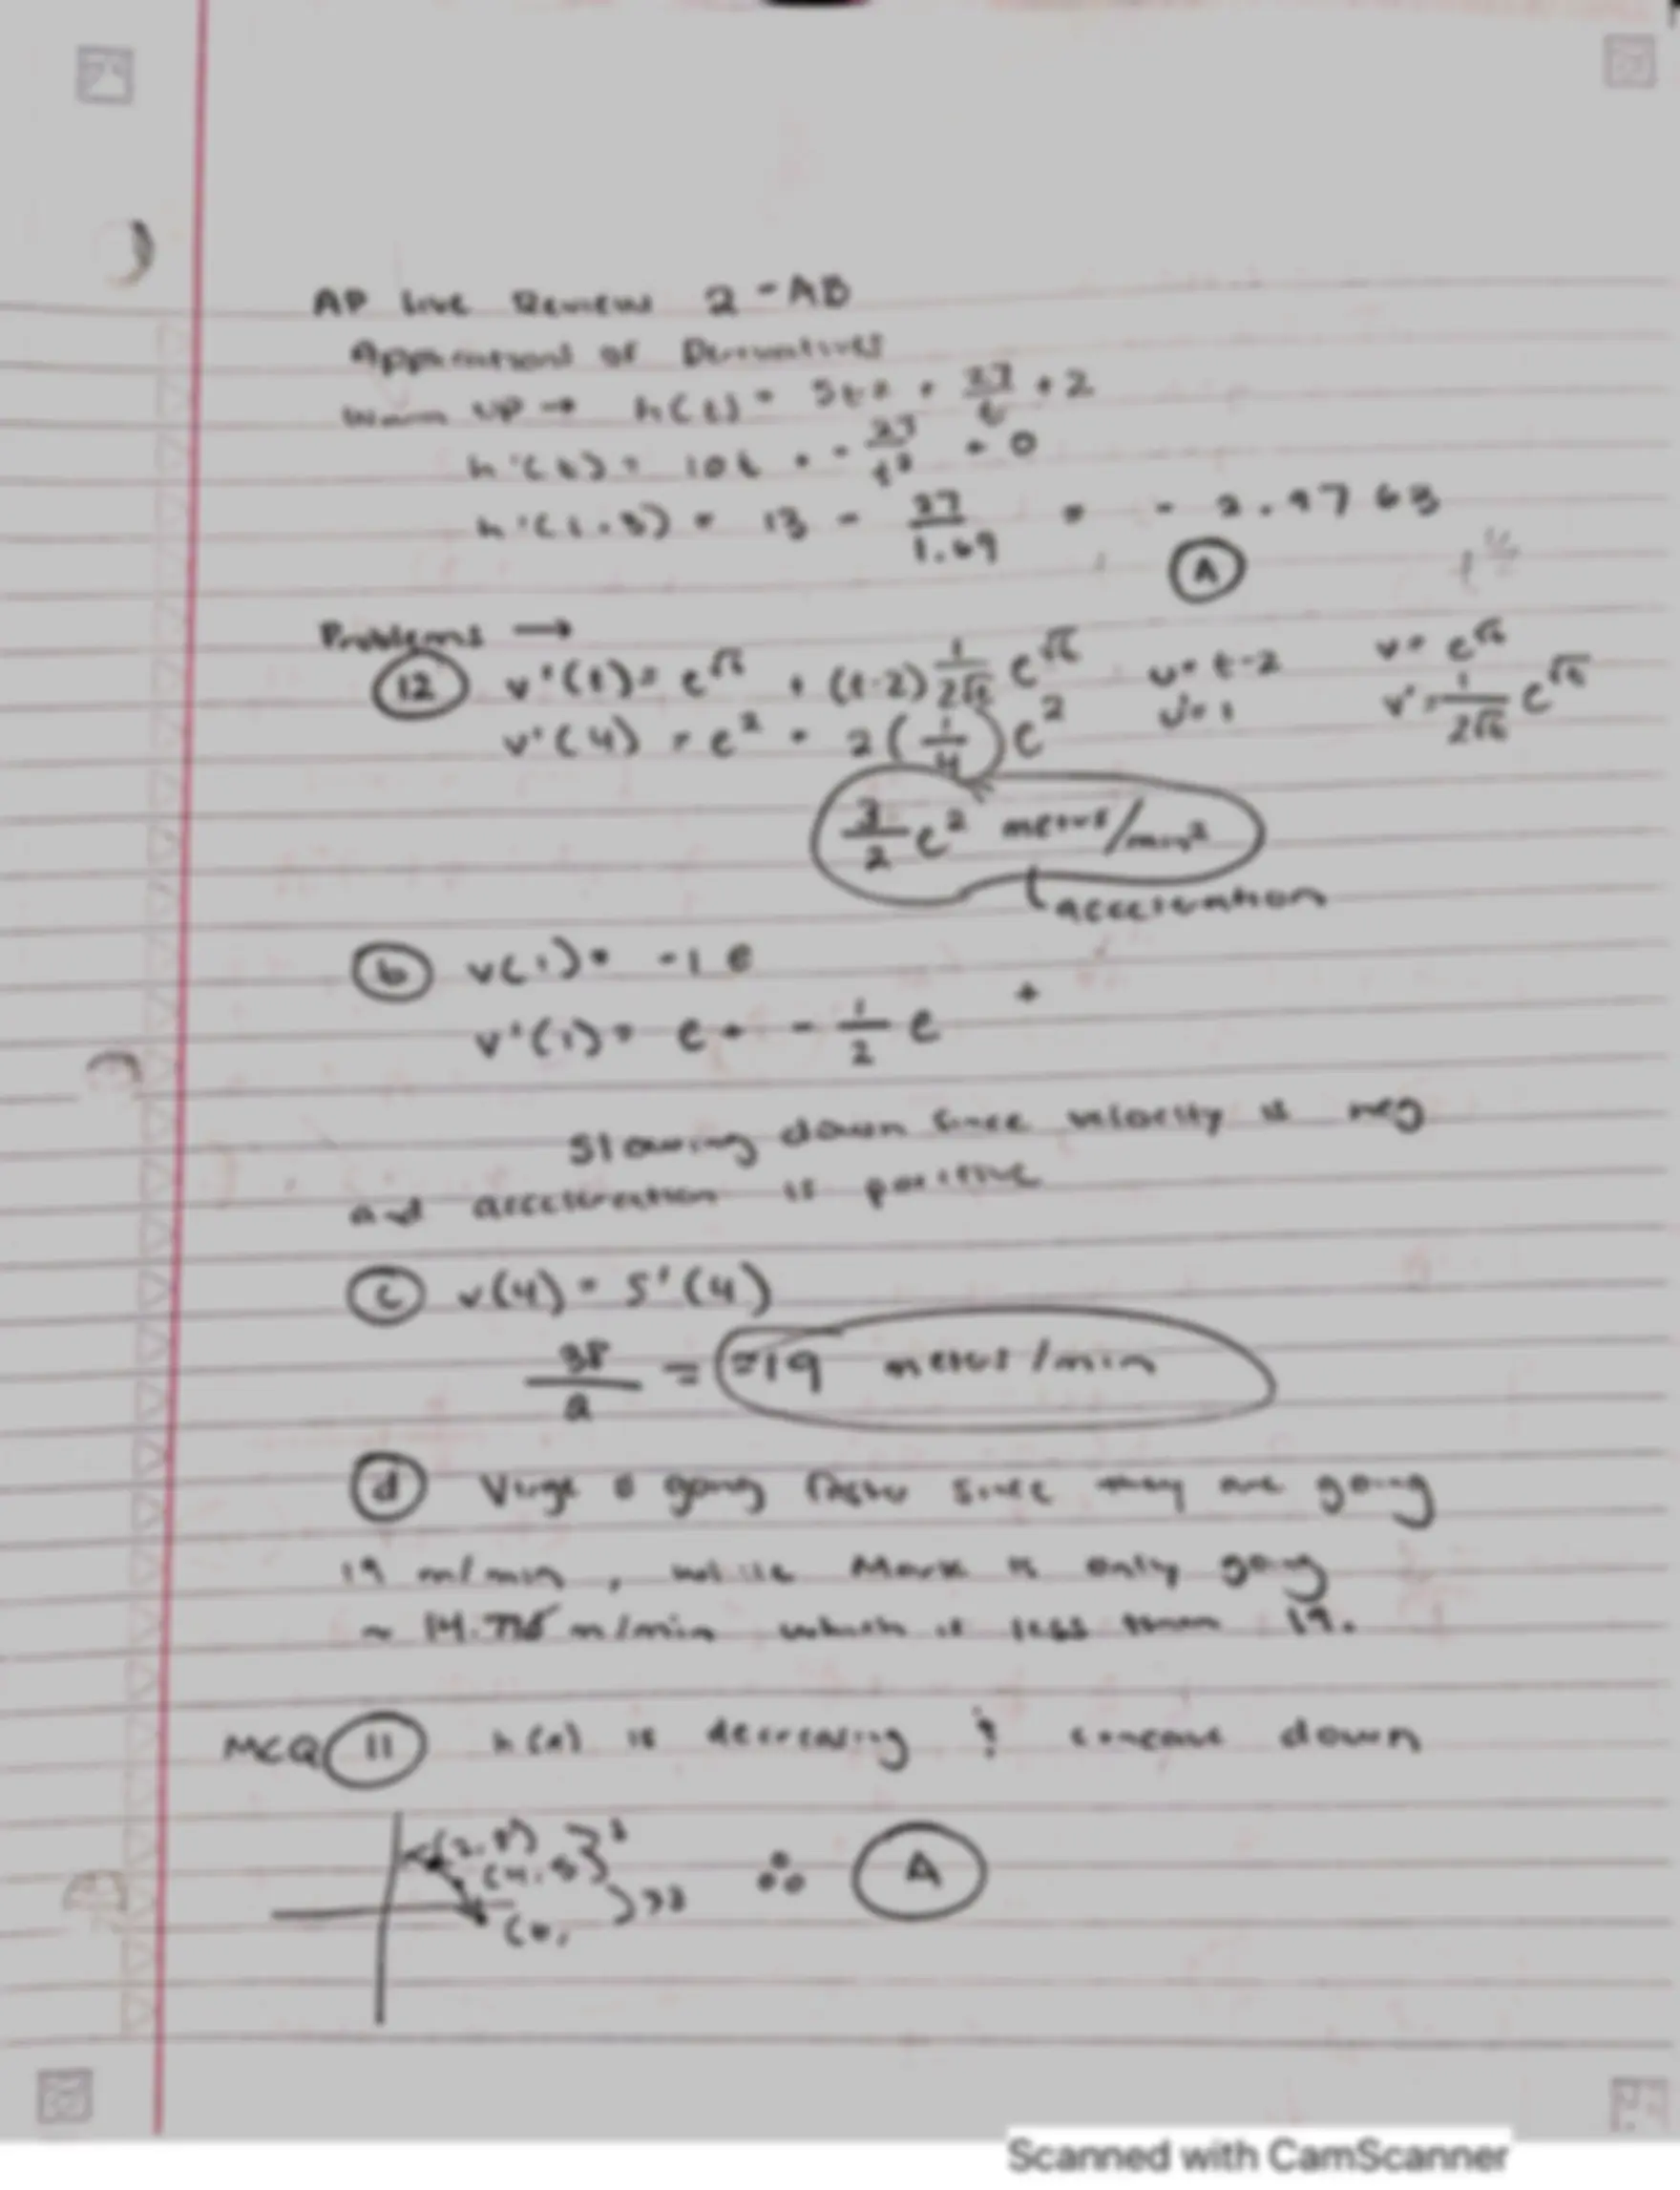 AP Live Review 2 - AB
Applications of Derivatives
Warm up → h(t) = 5t² + 27/t + 2
h'(t) = 10t + - 27/t² + 0
h'(1.3) = 13 - 27/1.69 = - 2.9763
A
Problems →
12 v'(t) = e^√t + (t-2) 1/2√t e^√t u = t-2 v = e^√t
v'(4) = e² + 2(1/4)e² u' = 1 v' = 1/2√t e^√t
3/2 e² meters/min²
acceleration
b v(1) = -1e
v'(1) = e + - 1/2 e +
Slowing down since velocity is neg
and acceleration is positive
c v(4) = s'(4)
38/2 = ≈19 meters/min
d going faster since they are going
19 m/min, while Mark is only going
~ 14.778 m/min which is less than 19.
MCQ 11 h(x) is decreasing & concave down
(2, 8) 3
(4, 5)
(6, >3
∴ A
Scanned with CamScanner